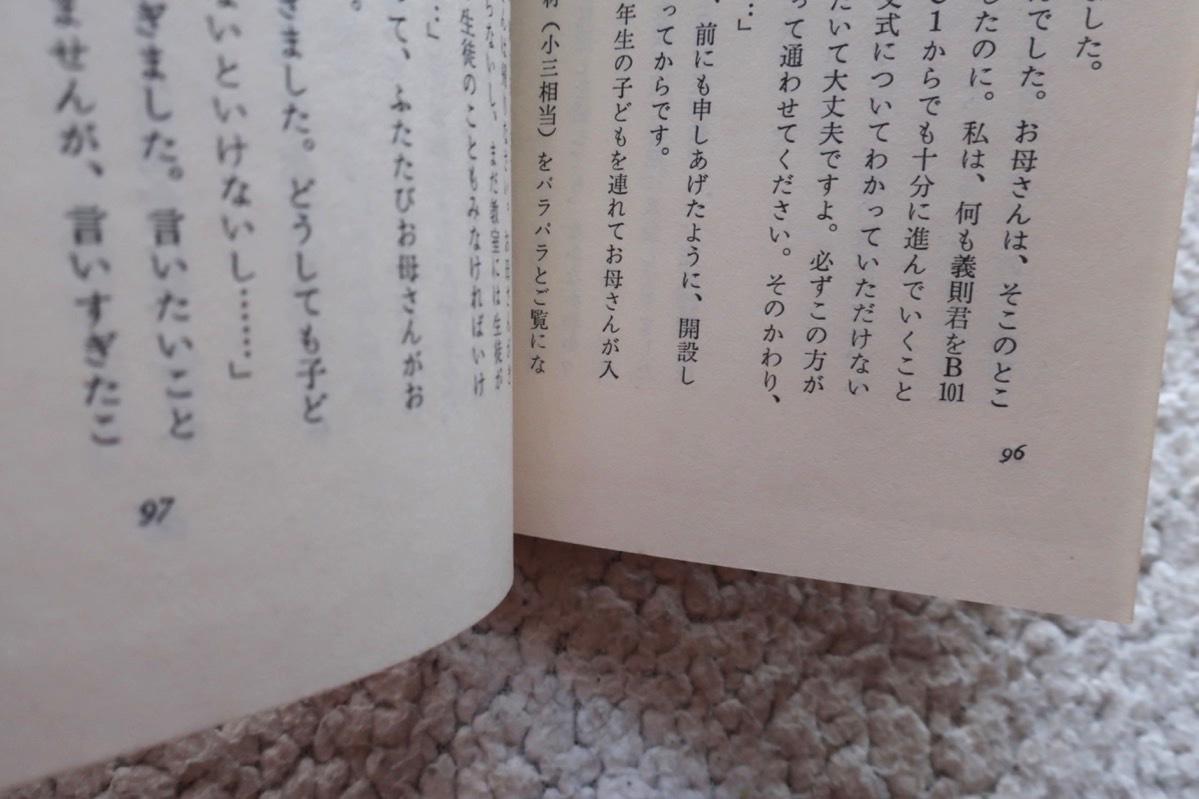 ました。
んでした。お母さんは、そこのとこ
したのに。私は、何も義則君をB101
1からでも十分に進んでいくこと
文式についてわかっていただけない
たいて大丈夫ですよ。必ずこの方が
って通わせてください。そのかわり、
…」
、前にも申しあげたように、開設し
ってからです。
年生の子どもを連れてお母さんが入
材（小三相当）をバラバラとご覧にな
96
らないし、まだ教室には生徒が
生徒のこともみなければいけ
…」
って、ふたたびお母さんがお
。
ぎました。どうしても子ど
ないといけないし……」
ぎました。言いたいこと
ませんが、言いすぎたこ
97